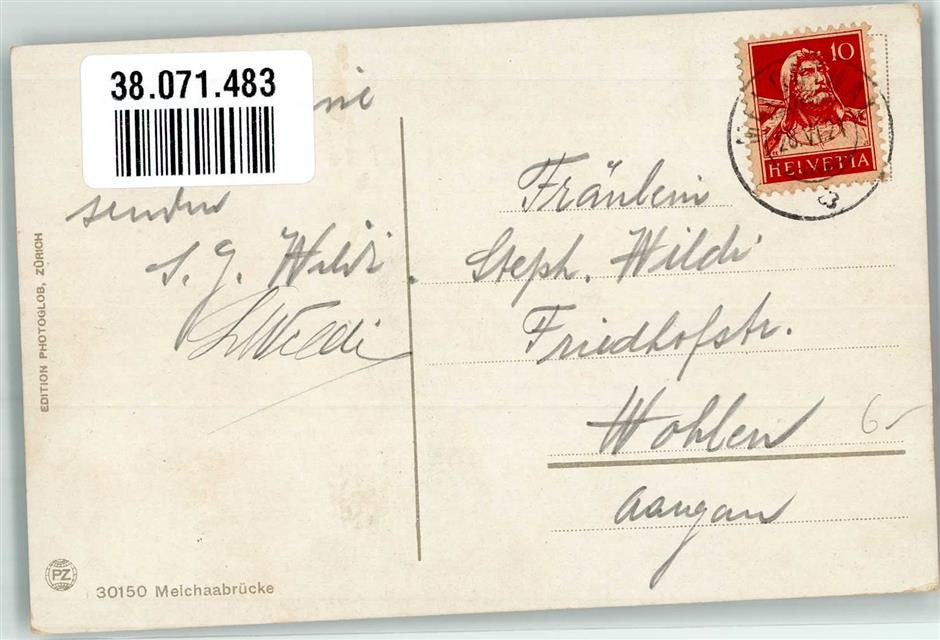 38.071.483
senden
S. J. Wildi.
Wildi
EDITION PHOTOGLOB, ZÜRICH
PZ
30150 Melchaabrücke
10
HELVETIA
Fräulein
Steph. Wildi
Friedhofstr.
Wohlen
Aargau
6-